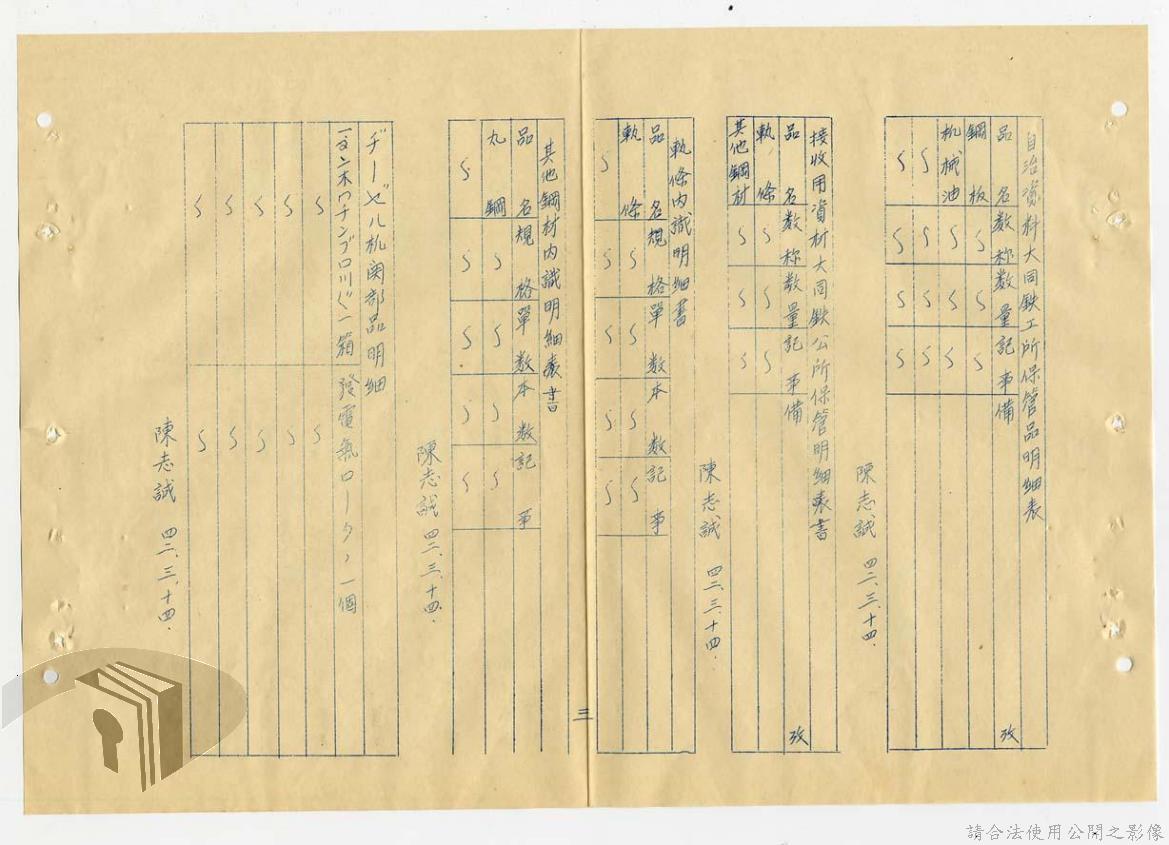 自治資料大同鉄工所保管品明細表
品名 数称 数量 記事 備攷
鋼板 〵 〵 〵
机械油 〵 〵 〵
〵 〵 〵 〵
〵 〵 〵 〵
陳志誠 四二、三、十四.
接收用資材大同鉄公所保管明細表書
品名 数称 数量 記事 備攷
軌條 〵 〵 〵
其他鋼材 〵 〵 〵
陳志誠 四二、三、十四.
軌條內識明細書
品名 規格 單数 本数 記事
軌條 〵 〵 〵 〵
〵 〵 〵 〵 〵
其他鋼材内識明細表書
品名 規格 單数 本数 記事
丸鋼 〵 〵 〵 〵
〵 〵 〵 〵 〵
陳志誠 四二、三、十四.
三
ヂーゼル机関部品明細
一箱 發電氣ロータ, 一個
陳志誠 四二、三、十四.
請合法使用公開之影像